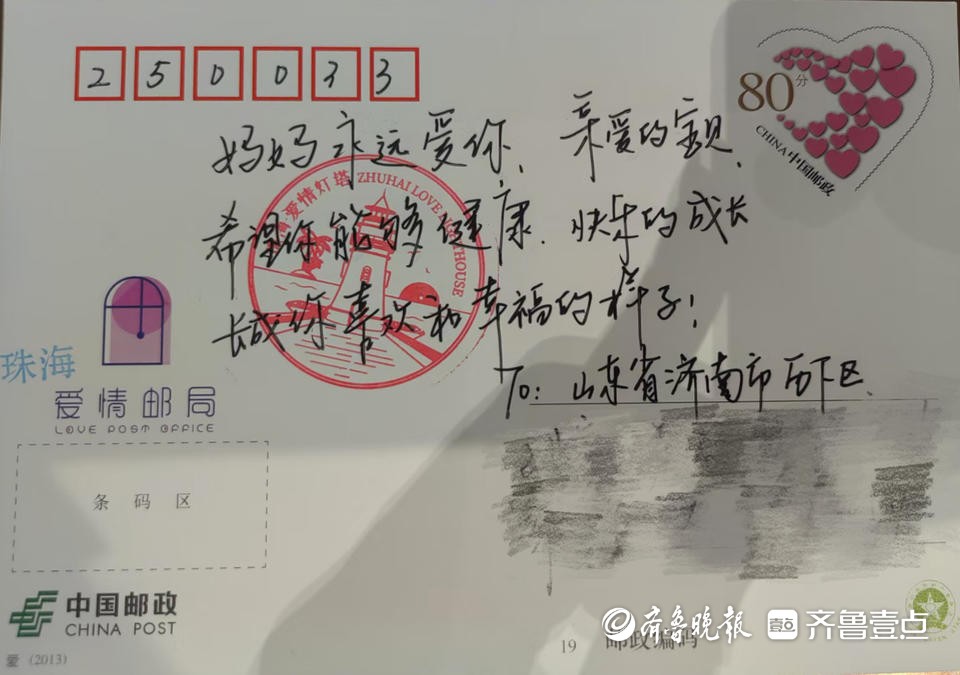 250033
80分
CHINA 中国邮政
妈妈永远爱你、亲爱的宝贝、
希望你能够健康、快乐的成长
长成你喜欢和幸福的样子!
爱情灯塔 ZHUHAI LOVE LIGHTHOUSE
To: 山东省济南市历下区
珠海
爱情邮局
LOVE POST OFFICE
条码区
中国邮政
CHINA POST
爱 (2013)
19 邮政编码
齐鲁晚报 壹点 齐鲁壹点